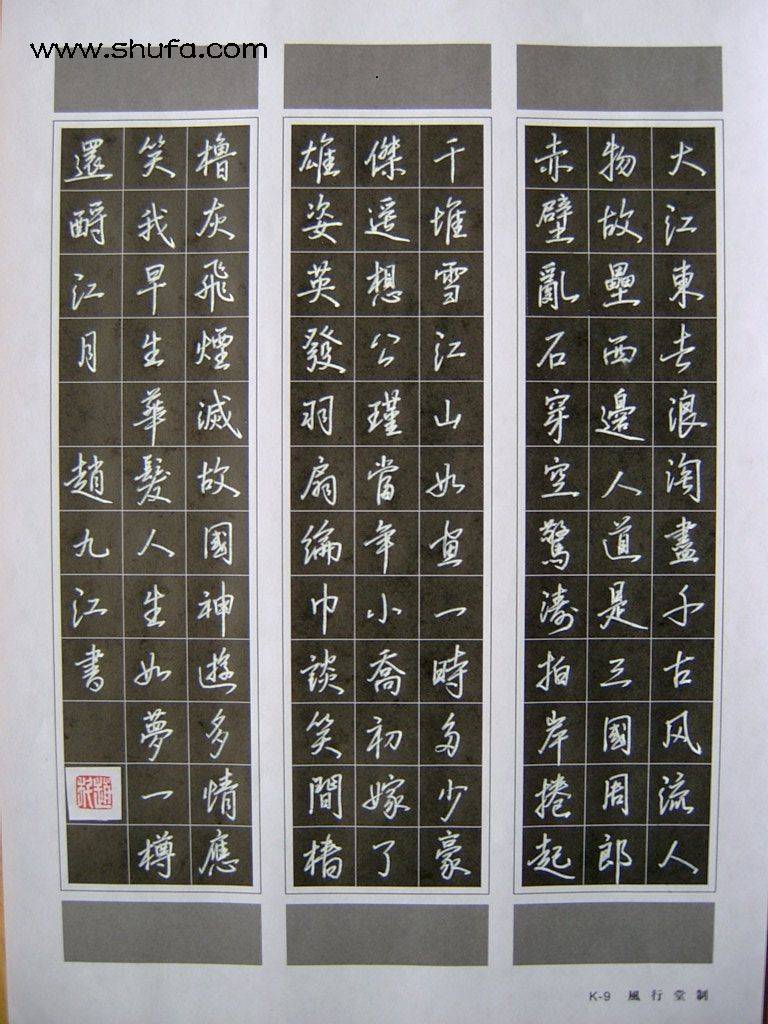 www.shufa.com
大江東去浪淘盡千古风流人
物故壘西邊人道是三國周郎
赤壁亂石穿空驚濤拍岸捲起
千堆雪江山如畫一時多少豪
傑遥想公瑾當年小喬初嫁了
雄姿英發羽扇綸巾談笑間檣
櫓灰飛煙滅故國神遊多情應
笑我早生華髮人生如夢一樽
還酹江月 趙九江書
K-9 風行堂制